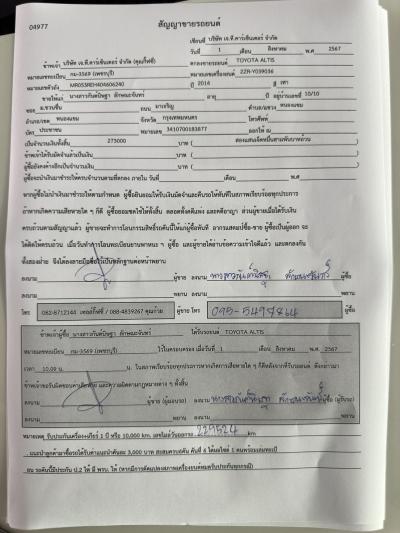 04977
สัญญาขายรถยนต์
เขียนที่ บริษัท เจ.ที.คาร์เซ็นเตอร์ จำกัด
วันที่ 1 เดือน สิงหาคม พ.ศ 2567
ข้าพเจ้า บริษัท เจ.ที.คาร์เซ็นเตอร์ จำกัด ตกลงขายรถยนต์ TOYOTA ALTIS
หมายเลขทะเบียน กม-3569 (เพชรบุรี) หมายเลขเครื่องยนต์ 2ZR-Y039036
หมายเลขตัวถัง MR053REH404606240 ปี 2014 สี เทา
ขายให้แก่ นางสาวกันต์นิษฐา ลักษณะจันทร์ อายุ ปี อยู่บ้านเลขที่ 10/10
ซอย ม.ชวนชื่น ถนน มาเจริญ ตำบล/แขวง หนองแขม
อำเภอ/เขต หนองแขม จังหวัด กรุงเทพมหานคร โทรศัพท์
บัตร ประชาชน หมายเลข 3410700183877 ออกให้ ณ
เป็นจำนวนเงินทั้งสิ้น 273000 บาท ( สองแสนเจ็ดหมื่นสามพันบาทถ้วน )
ข้าพเจ้าได้รับมัดจำแล้วเป็นเงิน บาท ( )
ผู้ซื้อยังคงค้างอีกเป็นจำนวนเงิน บาท ( )
ผู้ซื้อจะนำเงินมาชำระให้ครบจำนวนตามที่ตกลง ภายใน วันที่ เดือน พ.ศ
หากผู้ซื้อไม่นำเงินมาชำระตามกำหนด ผู้ซื้อยินยอมให้ริบเงินมัดจำและคืนรถให้ทันทีในสภาพเรียบร้อยทุกประการ
ถ้าหากเกิดความเสียหายใด ๆ ก็ดี ผู้ซื้อยอมชดใช้ให้ทั้งสิ้น ตลอดทั้งคดีแพ่ง และคดีอาญา ส่วนผู้ขายเมื่อได้รับเงิน
ครบถ้วนตามสัญญาแล้ว ผู้ขายจะทำการโอนกรรมสิทธิ์รถคันนี้ให้แก่ผู้ซื้อทันที อากรแสตมป์ซื้อ-ขาย ผู้ซื้อเป็นผู้ออก จะ
ได้คิดให้ครบถ้วน เมื่อวันทำการโอนทะเบียนยานพาหนะ ฯ ผู้ซื้อ และผู้ขายได้อ่านข้อความเข้าใจดีแล้ว และตกลงกัน
ทั้งสองฝ่าย จึงได้ลงลายมือชื่อไว้เป็นหลักฐานต่อหน้าพยาน
ลงนาม ผู้ขาย ลงนาม นางสาวกันต์นิษฐา ลักษณะจันทร์ ผู้ซื้อ
ลงนาม พยาน ลงนาม พยาน
โทร 082-8712144 เซลล์กีฟซี่ / 088-4839267 คุณก้วย ผู้ขาย โทร 095-5497864 ผู้ซื้อ
ข้าพเจ้าผู้ซื้อ นางสาวกันต์นิษฐา ลักษณะจันทร์ ได้รับรถยนต์ TOYOTA ALTIS
หมายเลขทะเบียน กม-3569 (เพชรบุรี) ไว้ในครอบครอง เมื่อวันที่ 1 เดือน สิงหาคม พ.ศ 2567
เวลา 10.09 น. ในสภาพเรียบร้อยทุกประการหากเกิดการเสียหายใด ๆ ก็ดีหลังจากที่รับรถยนต์ ดังกล่าวมา
ข้าพเจ้าขอรับผิดชอบความเสียหาย และความผิดตามกฎหมายต่าง ๆ ทั้งสิ้น
ลงนาม ผู้ขาย (ผู้มอบรถ) ลงนาม นางสาวกันต์นิษฐา ลักษณะจันทร์ ผู้ซื้อ (ผู้รับรถ)
ลงนาม พยาน ลงนาม พยาน
หมายเหตุ รับประกันเครื่อง+เกียร์ 1 ปี หรือ 10,000 km. เลขไมล์วันออกรถ 229524 km
แนะนำลูกค้ามาซื้อรถได้รับค่าแนะนำคันละ 3,000 บาท สะสมครบ5คัน คันที่ 6 ได้มอไซค์ 1 คันพร้อมเล่มทะเบี